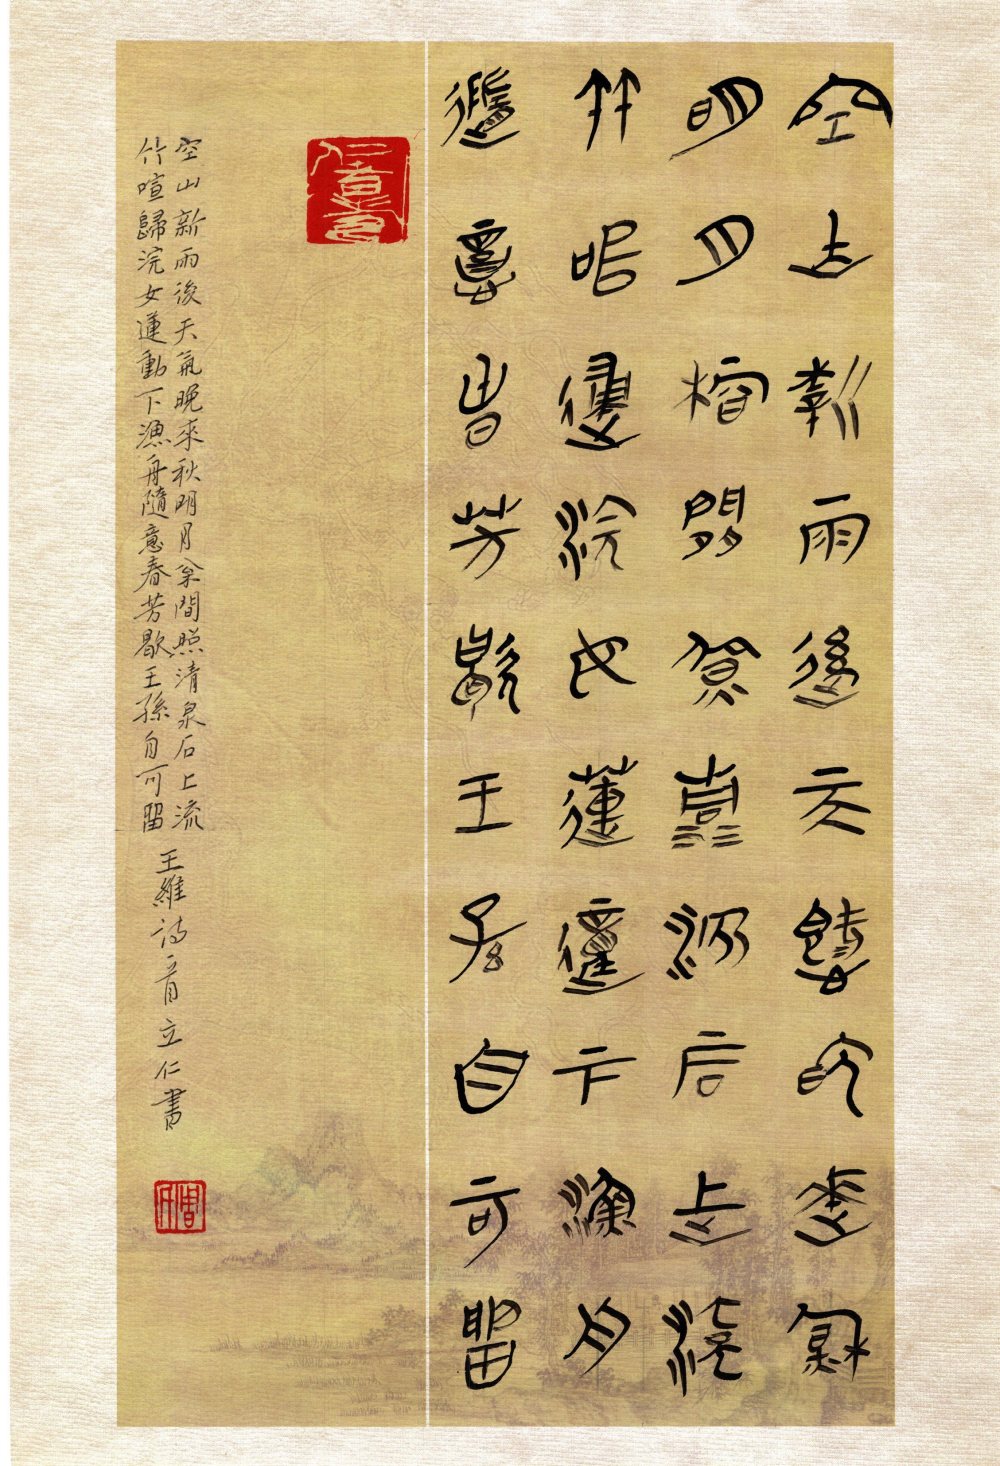 空山新雨後天氣晚來秋
明月松間照清泉石上流
竹喧歸浣女蓮動下漁舟
隨意春芳歇王孫自可留
空山新雨後天氣晚來秋明月枀間照清泉石上流
竹喧歸浣女蓮動下漁舟隨意春芳歇王孫自可留
王維詩 立仁書